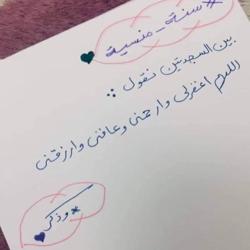 *سنة_منسية
بين السجدتين نقول :
اللهم اغفرلي وارحمني وعافني وارزقني
*وذكر